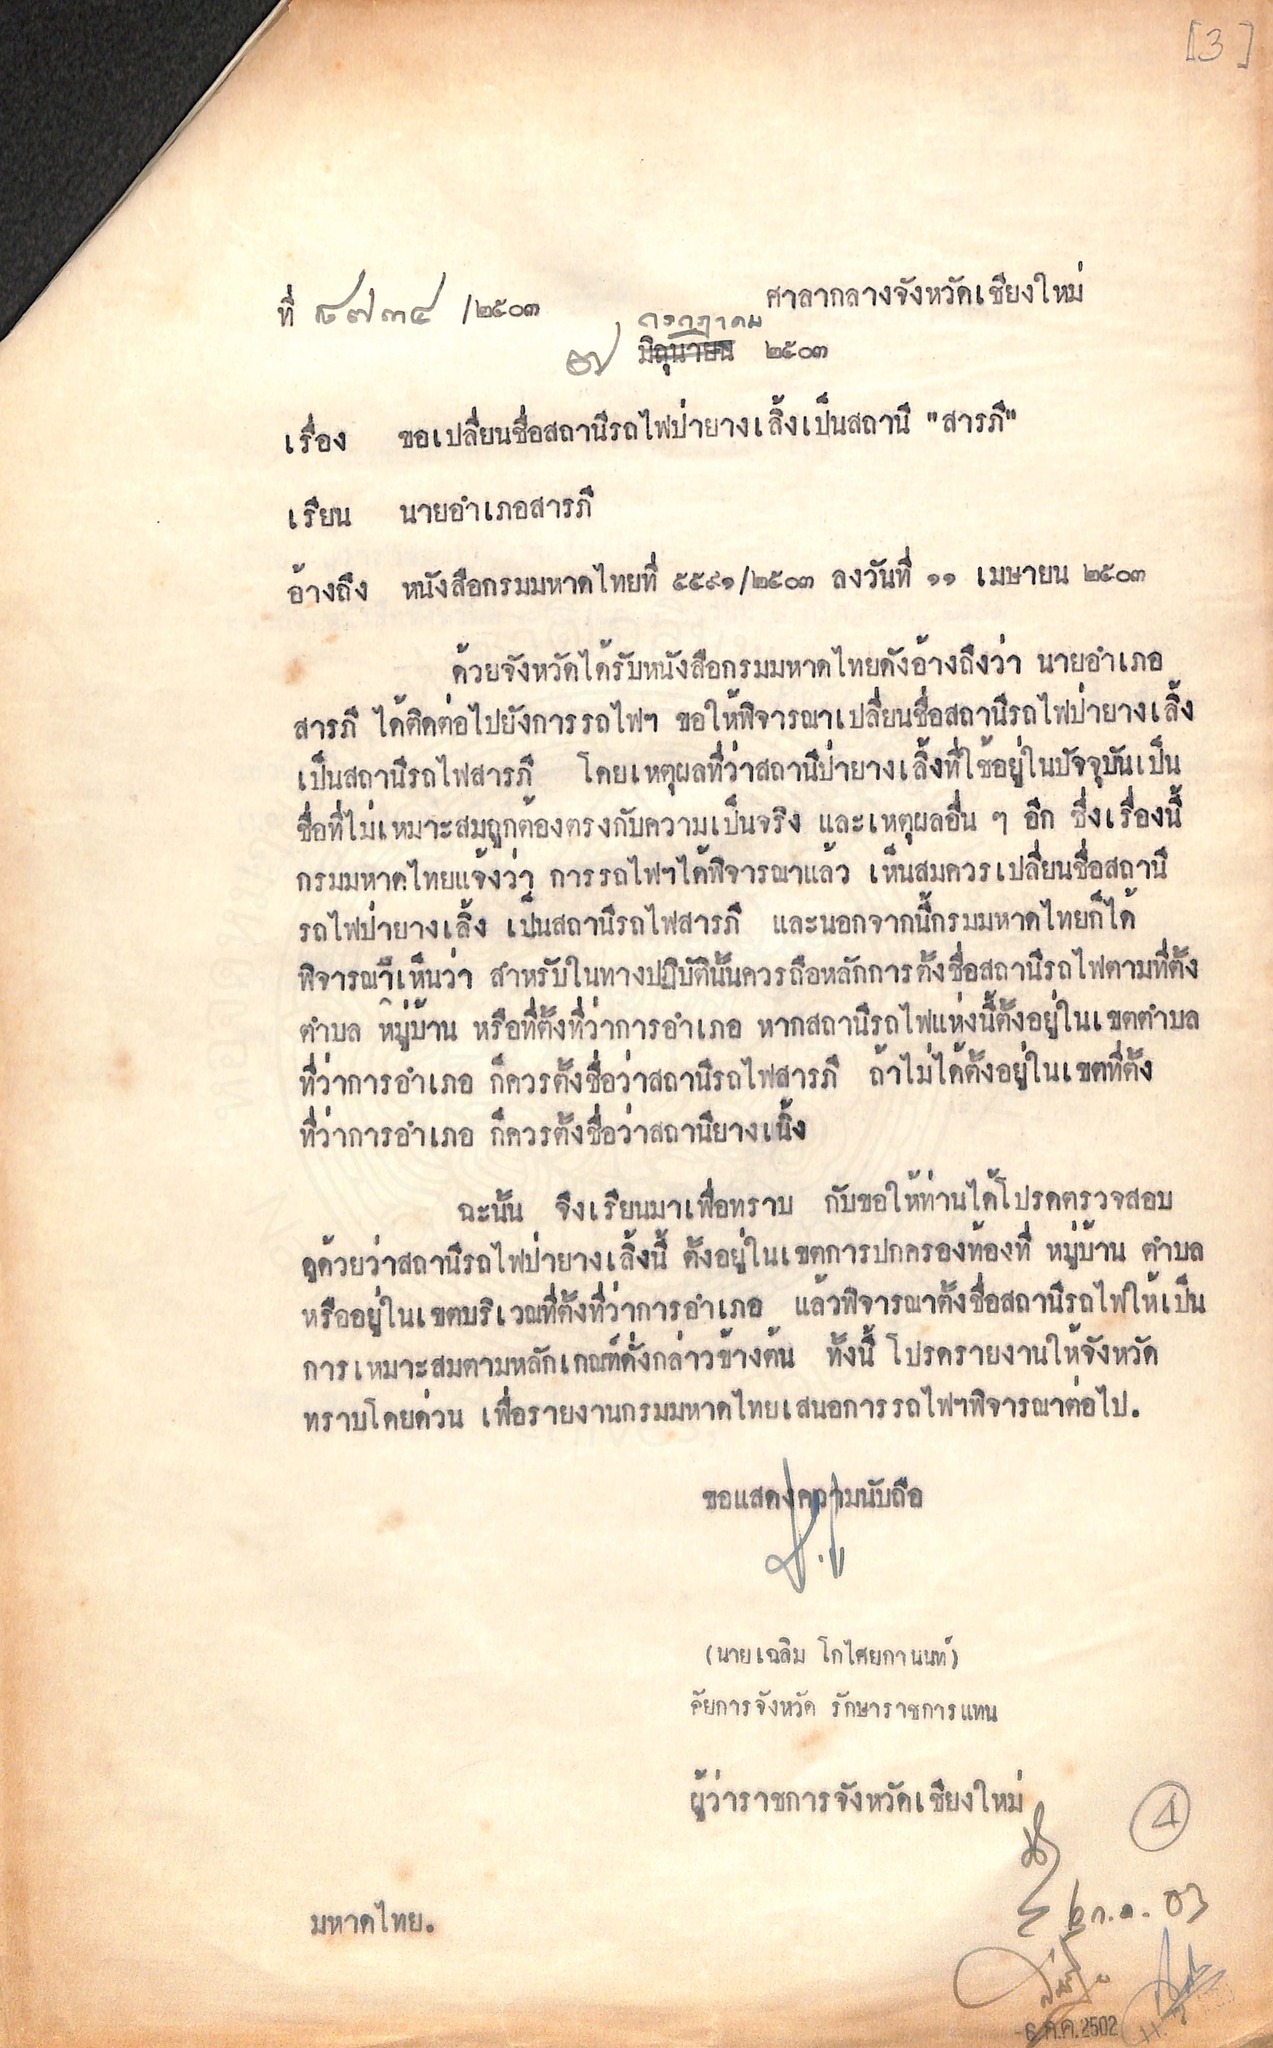 [3]
ที่ ๘๗๓๔ /๒๕๐๓
ศาลากลางจังหวัดเชียงใหม่
กรกฎาคม
๗ มิถุนายน ๒๕๐๓
เรื่อง ขอเปลี่ยนชื่อสถานีรถไฟป่ายางเลิ้งเป็นสถานี "สารภี"
เรียน นายอำเภอสารภี
อ้างถึง หนังสือกรมมหาดไทยที่ ๕๕๙๑/๒๕๐๓ ลงวันที่ ๑๑ เมษายน ๒๕๐๓
ด้วยจังหวัดได้รับหนังสือกรมมหาดไทยดังอ้างถึงว่า นายอำเภอ
สารภี ได้ติดต่อไปยังการรถไฟฯ ขอให้พิจารณาเปลี่ยนชื่อสถานีรถไฟป่ายางเลิ้ง
เป็นสถานีรถไฟสารภี โดยเหตุผลที่ว่าสถานีป่ายางเลิ้งที่ใช้อยู่ในปัจจุบันเป็น
ชื่อที่ไม่เหมาะสมถูกต้องตรงกับความเป็นจริง และเหตุผลอื่น ๆ อีก ซึ่งเรื่องนี้
กรมมหาดไทยแจ้งว่า การรถไฟฯได้พิจารณาแล้ว เห็นสมควรเปลี่ยนชื่อสถานี
รถไฟป่ายางเลิ้ง เป็นสถานีรถไฟสารภี และนอกจากนี้กรมมหาดไทยก็ได้
พิจารณาเห็นว่า สำหรับในทางปฏิบัตินั้นควรถือหลักการตั้งชื่อสถานีรถไฟตามที่ตั้ง
ตำบล หมู่บ้าน หรือที่ตั้งที่ว่าการอำเภอ หากสถานีรถไฟแห่งนี้ตั้งอยู่ในเขตตำบล
ที่ว่าการอำเภอ ก็ควรตั้งชื่อว่าสถานีรถไฟสารภี ถ้าไม่ได้ตั้งอยู่ในเขตที่ตั้ง
ที่ว่าการอำเภอ ก็ควรตั้งชื่อว่าสถานียางเนิ้ง
ฉะนั้น จึงเรียนมาเพื่อทราบ กับขอให้ท่านได้โปรดตรวจสอบ
ดูด้วยว่าสถานีรถไฟป่ายางเลิ้งนี้ ตั้งอยู่ในเขตการปกครองท้องที่ หมู่บ้าน ตำบล
หรืออยู่ในเขตบริเวณที่ตั้งที่ว่าการอำเภอ แล้วพิจารณาตั้งชื่อสถานีรถไฟให้เป็น
การเหมาะสมตามหลักเกณฑ์ดั่งกล่าวข้างต้น ทั้งนี้ โปรดรายงานให้จังหวัด
ทราบโดยด่วน เพื่อรายงานกรมมหาดไทยเสนอการรถไฟฯพิจารณาต่อไป.
ขอแสดงความนับถือ
(นายเฉลิม โกไศยกานนท์)
อัยการจังหวัด รักษาราชการแทน
ผู้ว่าราชการจังหวัดเชียงใหม่
4
ก.ค. 03
มหาดไทย.
-6 ก.ค.2502